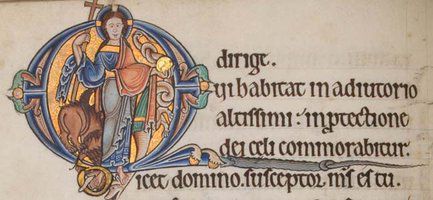 dirige.
Qui habitat in adiutorio
altissimi : in ꝓtectione
dei celi commorabitur.
icet domino. susceptor m̅s es tu.